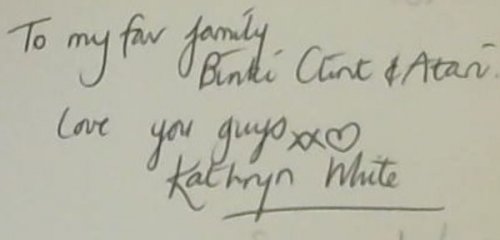 To my fav family
Binki Clint & Atari.
Love you guys xx♡
Kathryn White